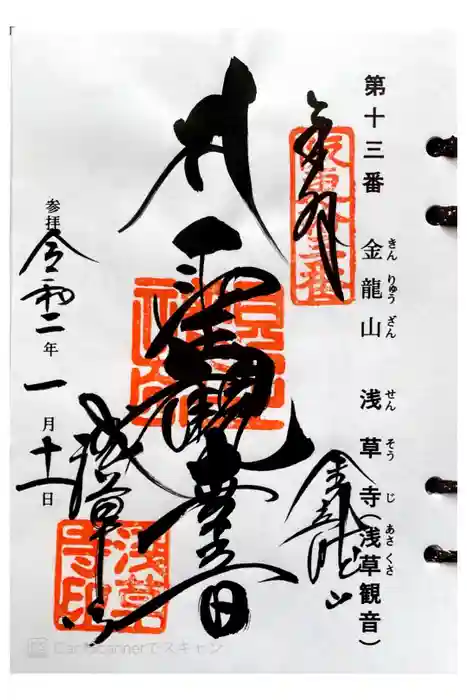 第十三番 金龍山 浅草寺(浅草観音)
きん りゅう ざん せん そう じ あさ くさ
奉拝
坂東十三番
金龍山
聖観世音
浅草寺
浅草寺印
参拝 令和二年一月十一日
CamScannerでスキャン